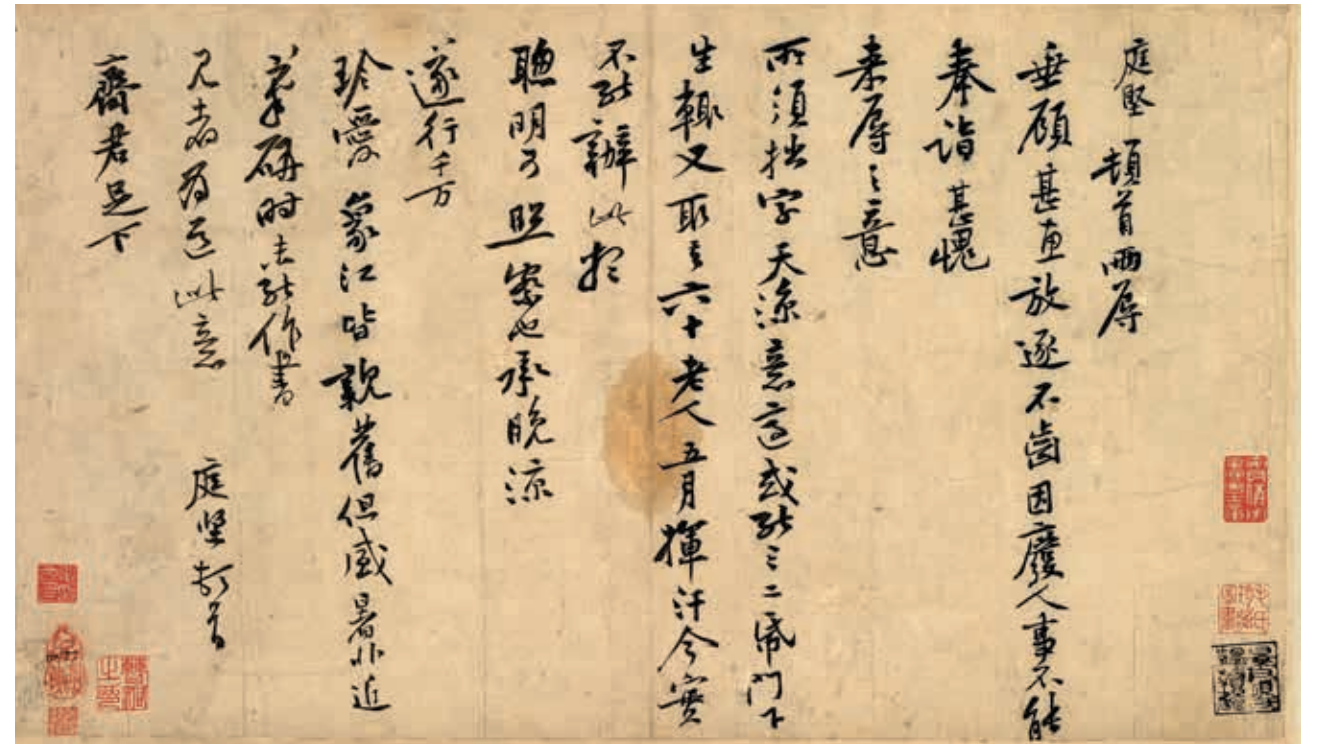 庭堅頓首兩辱
垂顧甚惠放逐不齒因廢人事不能
奉詣甚愧
来辱之意
所須拙字天凉意適或能三二紙門下
生輒又取去六十老人五月揮汗今實
不能辦此想
聰明可照察也承晚凉
遂行千万
珍愛象江皆親舊但盛暑非近
筆硯時未能作書
見者為道此意 庭堅頓首
齋君足下